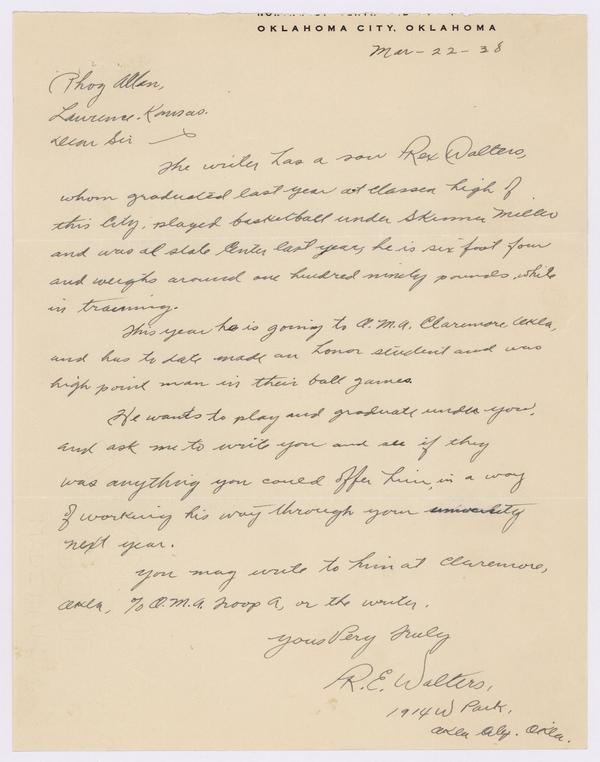 OKLAHOMA CITY, OKLAHOMA
Mar-22-38
Phog Allen,
Lawrence. Kansas.
Dear Sir
The writer has a son Rex Walters,
whom graduated last year at Classen high of
this City, played basketball under Skinner Miller
and was all state Center last year, he is six foot four
and weighs around one hundred ninety pounds, while
in training.
This year he is going to O.M.A. Claremore, Okla,
and has to date made an honor student and was
high point man in their ball games.
He wants to play and graduate under you,
and ask me to write you and see if they
was anything you could offer him, in a way
of working his way through your university
next year.
You may write to him at Claremore,
Okla, % O.M.A. Troop A, or the writer.
Yours Very Truly
R.E. Walters,
1914 W Park,
Okla City. Okla.